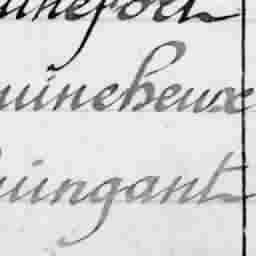 uinefort
uineheux
uingant